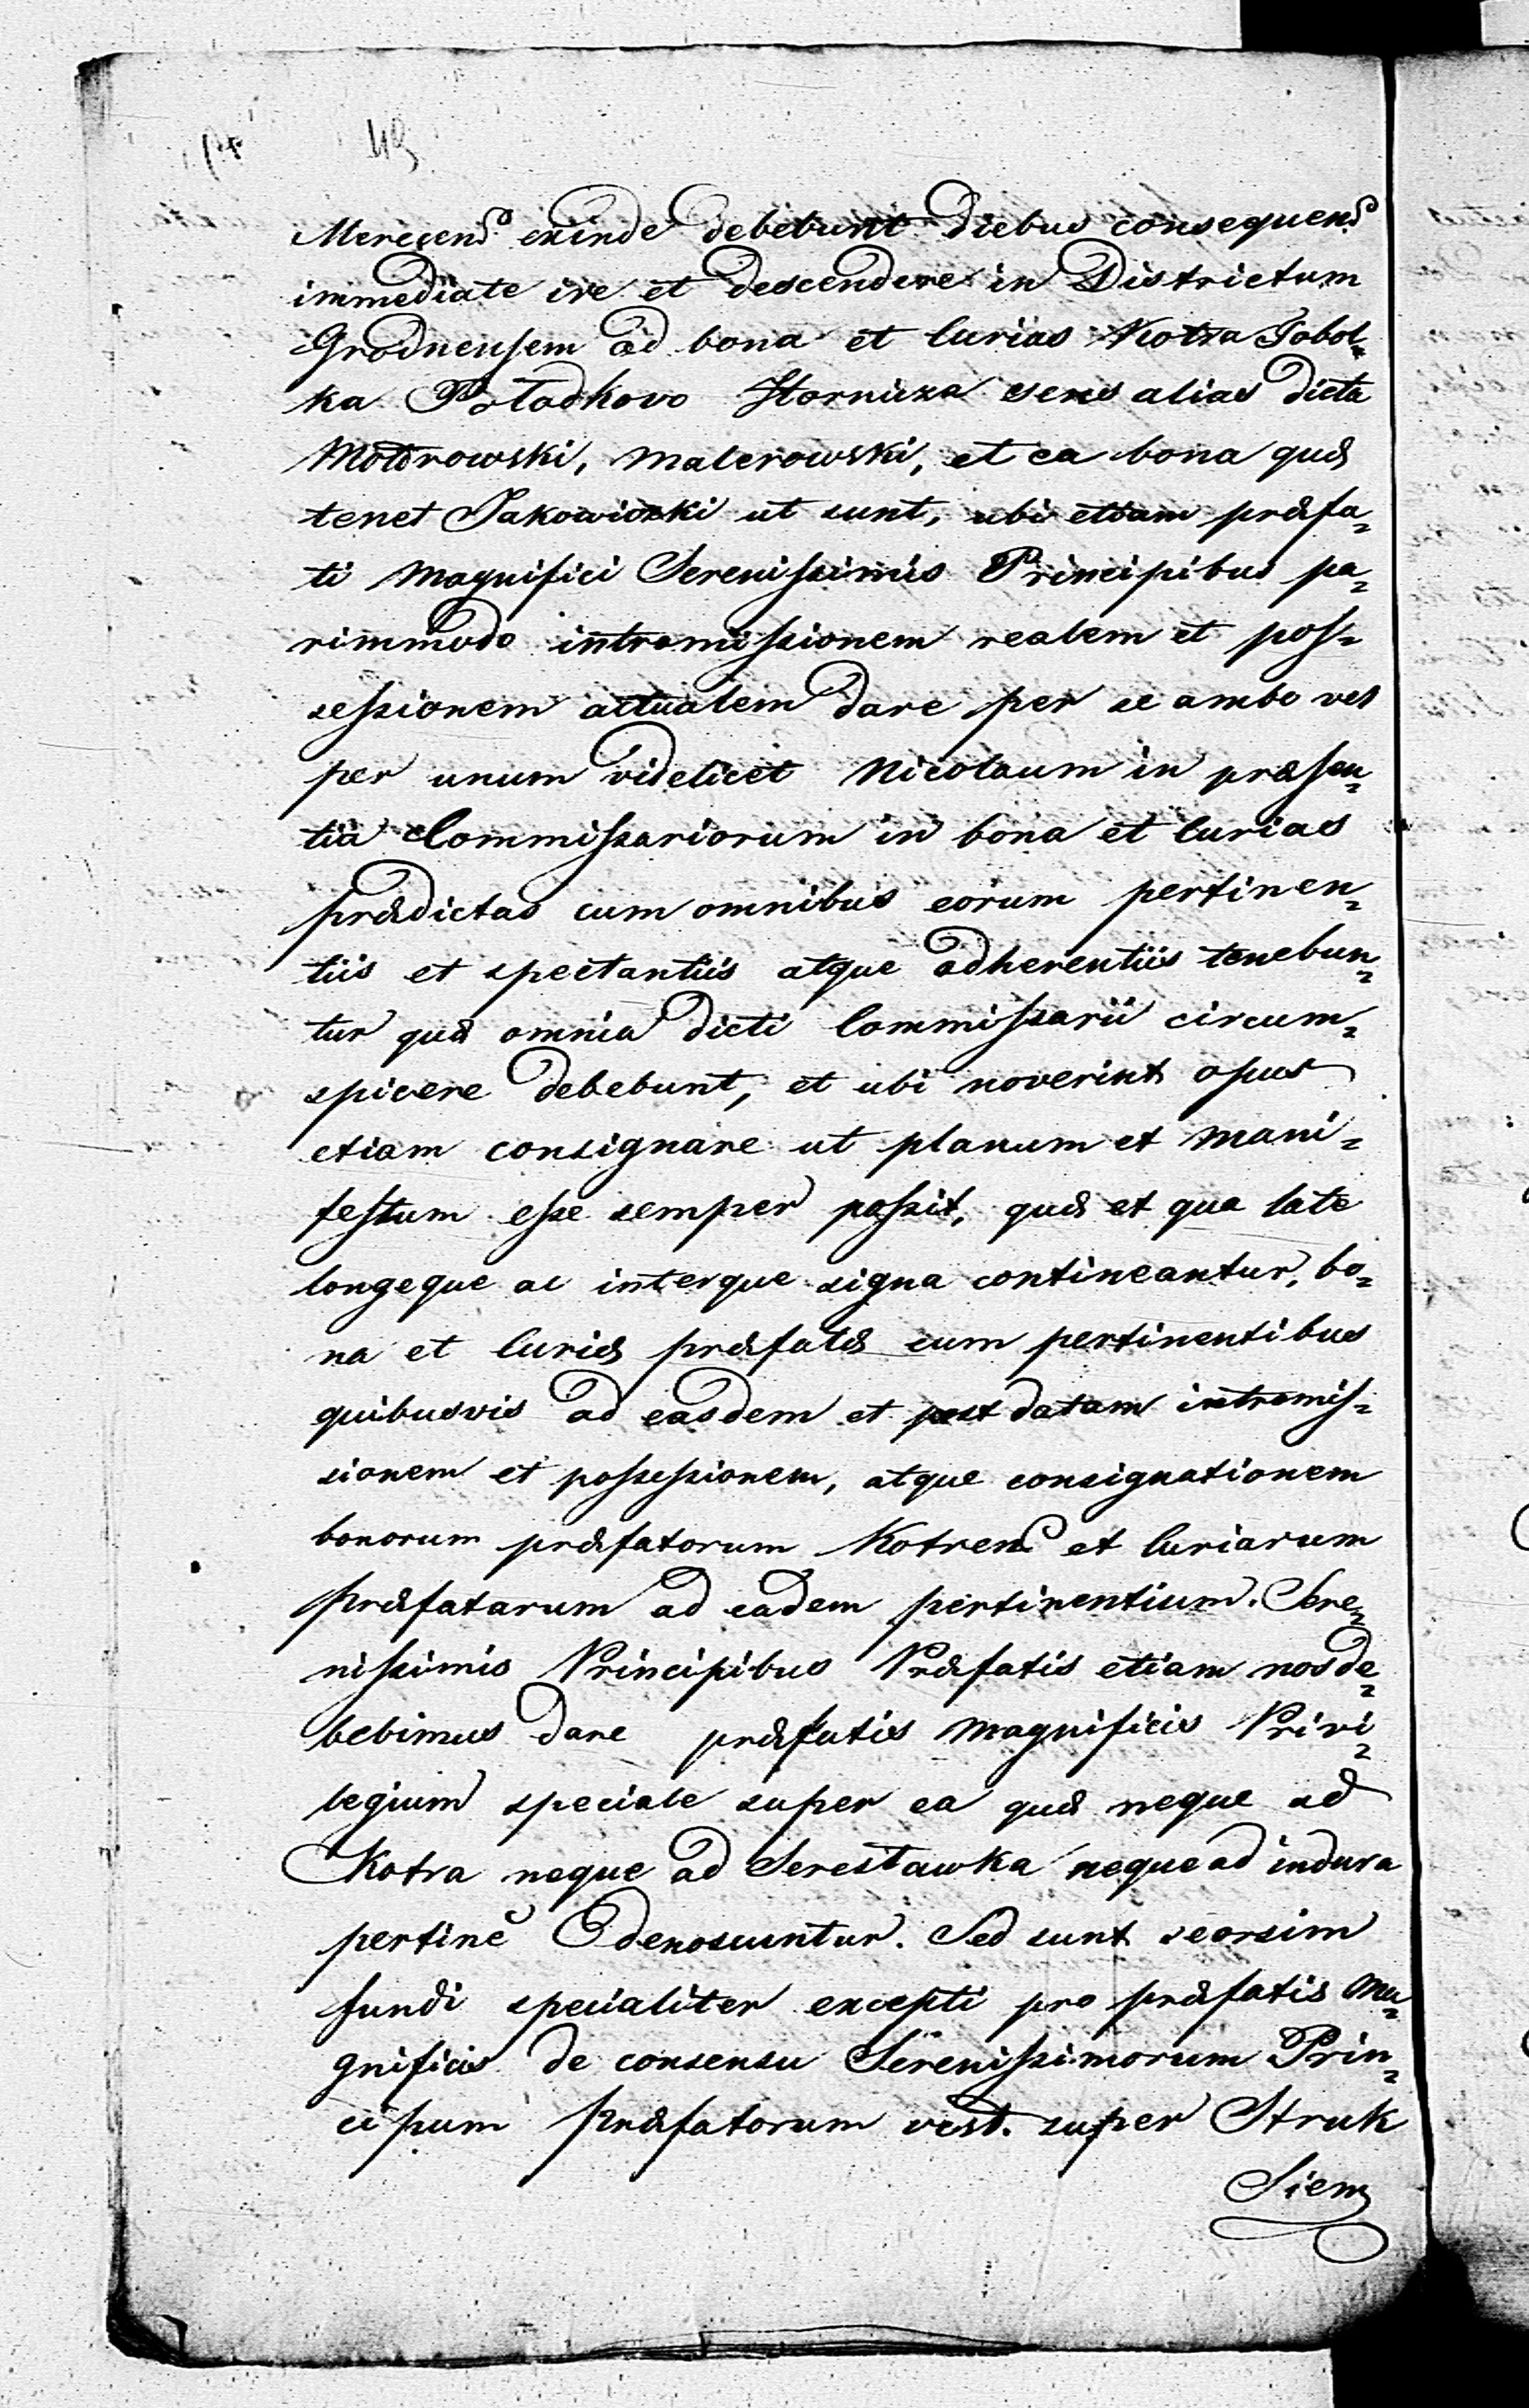 49
Merecens exinde debebunt diebus consequens
immediate ire et descendere in Districtum
Grodnensem ad bona et Curias Kotra Jobol=
ka Poladkovo Hornixa seus alias dicta
Motorowski, Malerowski, et ea bona quæ
tenet Jakowicki ut sunt, ubi etiam præfa=
ti Magnifici Serenissimis Principibus pa=
rimmodo intromissionem realem et pos=
sessionem actualem dare per se ambo vel
per unum videlicet Nicolaum in præsen=
tia Commissariorum in bona et Curias
prædictas cum omnibus eorum pertinen=
tiis et spectantiis atque adherentiis tenebun=
tur quæ omnia dicti Commissarii circum=
spicere debebunt, et ubi noverint opus
etiam consignare ut planum et mani=
festum esse semper possit, quæ et qua late
longeque ac interque signa contineantur, bo=
na et Curiæ præfatæ cum pertinentibus
quibusvis ad easdem et post datam intromis=
sionem et possessionem, atque consignationem
bonorum præfatorum Kotrens et Curiarum
præfatarum ad eadem pertinentium. Sere=
nissimis Principibus Præfatis etiam nos de=
bebimus dare præfatis Magnificis Privi=
legium speciale super ea quæ neque ad
Kotra neque ad Serestawka neque ad indura
pertine denoscuntur. Sed sunt seorsim
fundi specialiter excepti pro præfatis Ma=
gnificis de consensu Serenissimorum Prin=
cipum Præfatorum vest. super Struk
Siem